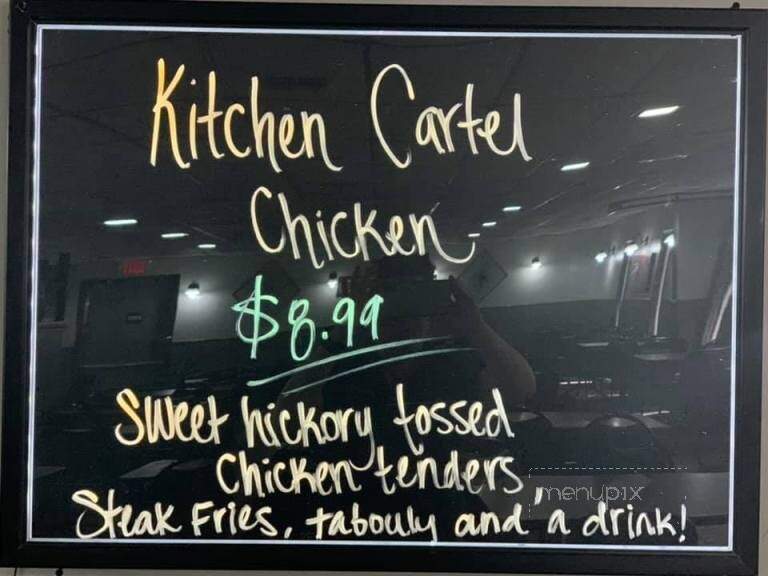 Kitchen Cartel
Chicken
$8.99
Sweet hickory tossed
Chicken tenders,
Steak Fries, tabouly and a drink!
menupix